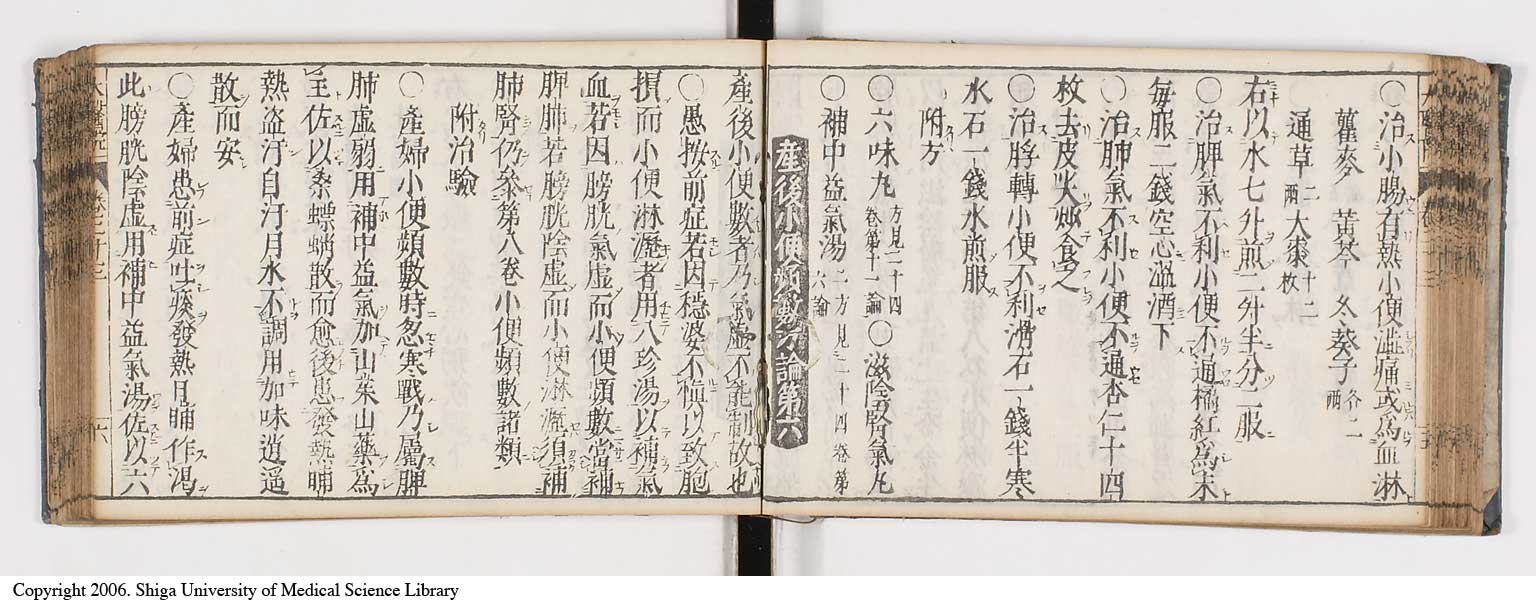 〇治小腸有熱小便澁痛或爲血淋
瞿麥 黄芩 冬葵子各二兩
通草二兩大棗十二枚
右以水七升煎二升半分二服
〇治脾氣不利小便不通橘紅爲末
毎服二錢空心溫酒下
〇治肺氣不利小便不通杏仁十四
枚去皮尖炒食之
〇治脬轉小便不利滑石一錢半寒
水石一錢水煎服
附方
〇六味丸方見二十四卷第十一論〇滋陰腎氣丸
〇補中益氣湯二方見二十四卷第六論
産後小便頻數方論第六
産後小便數者乃氣虚不能制故也
〇愚按前症若因穩婆不愼以致胞
損而小便淋瀝者用八珍湯以補氣
血若因膀胱氣虚而小便頻數當補
脾肺若膀胱陰虚而小便淋瀝須補
肺腎仍參第八卷小便頻數諸類
附治驗
〇産婦小便頻數時忽寒戰乃屬脾
肺虚弱用補中益氣加山茱山藥爲
主佐以桑螵蛸散而愈後患發熱晡
熱盗汗自汗月水不調用加味逍遥
散而安
〇産婦患前症吐痰發熱日晡作渇
此膀胱陰虚用補中益氣湯佐以六
Copyright 2006. Shiga University of Medical Science Library